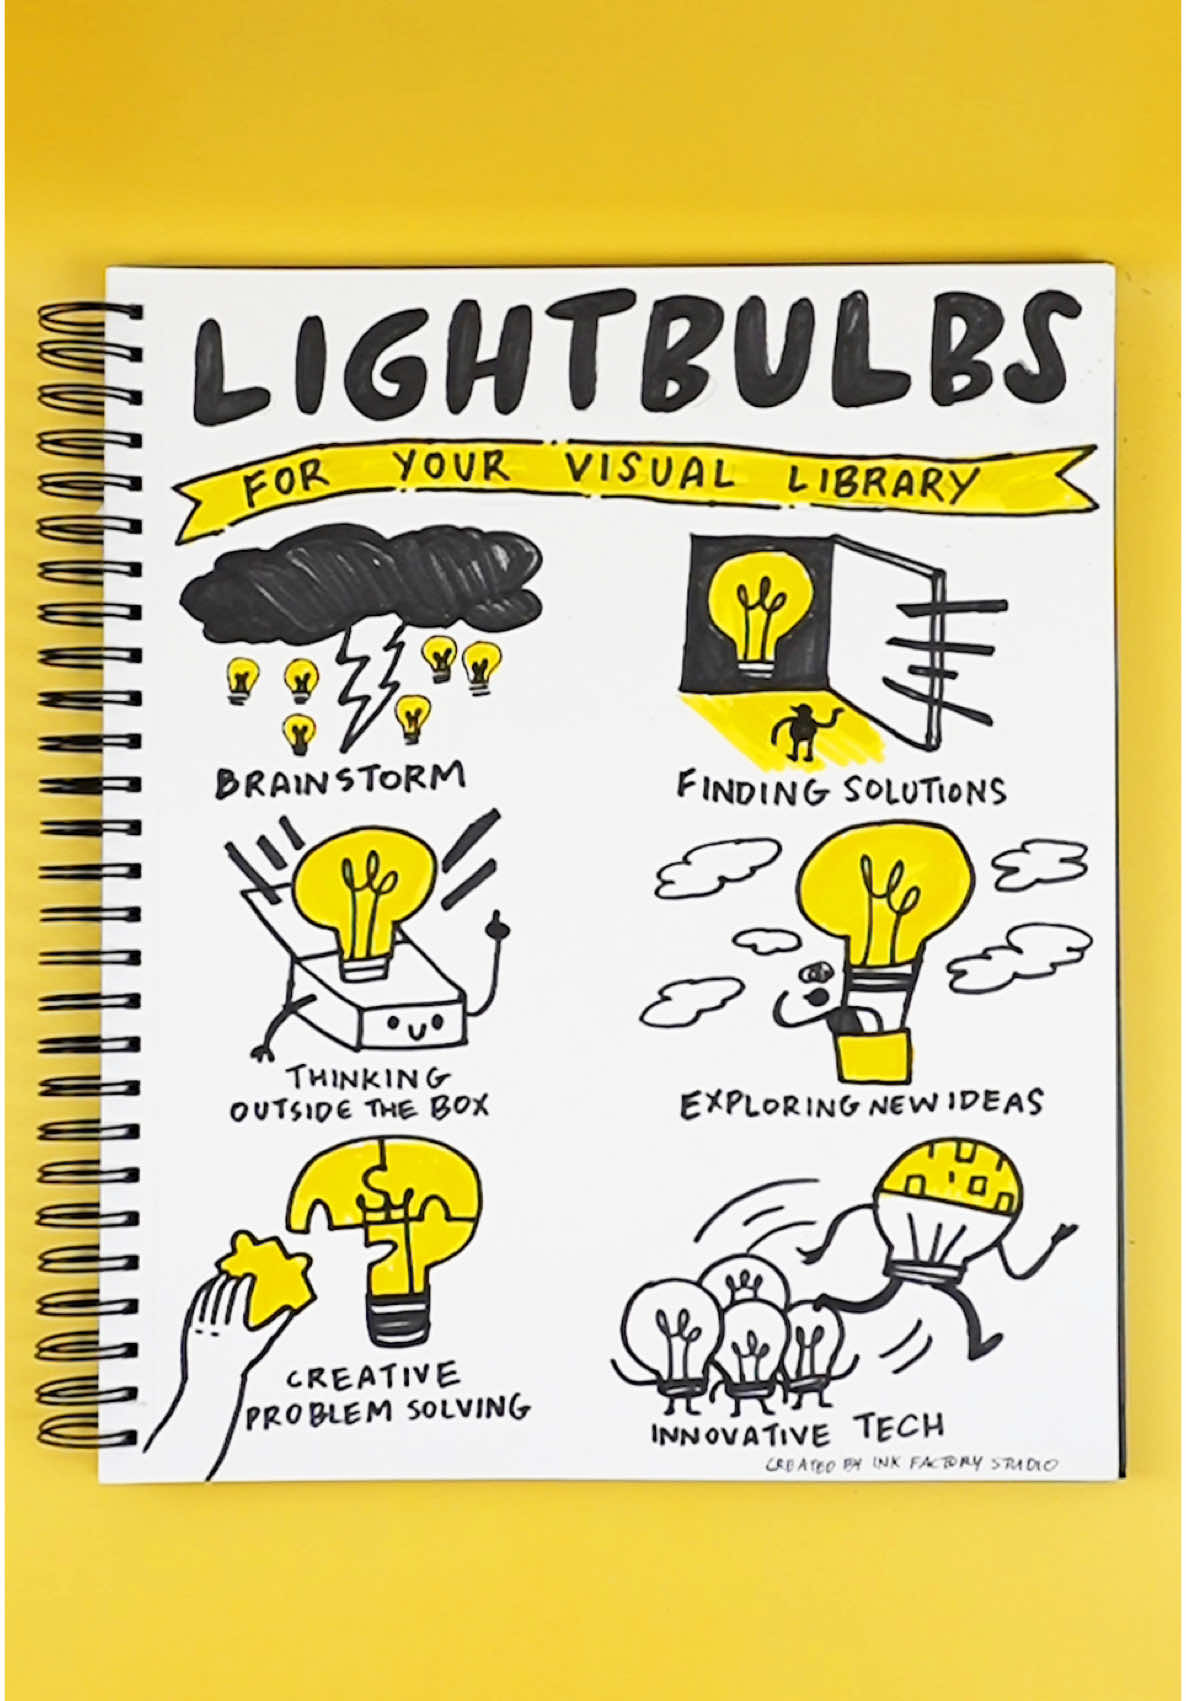 LIGHTBULBS
FOR YOUR VISUAL LIBRARY
BRAINSTORM
FINDING SOLUTIONS
THINKING
OUTSIDE THE BOX
EXPLORING NEW IDEAS
CREATIVE
PROBLEM SOLVING
INNOVATIVE TECH
CREATED BY INK FACTORY STUDIO